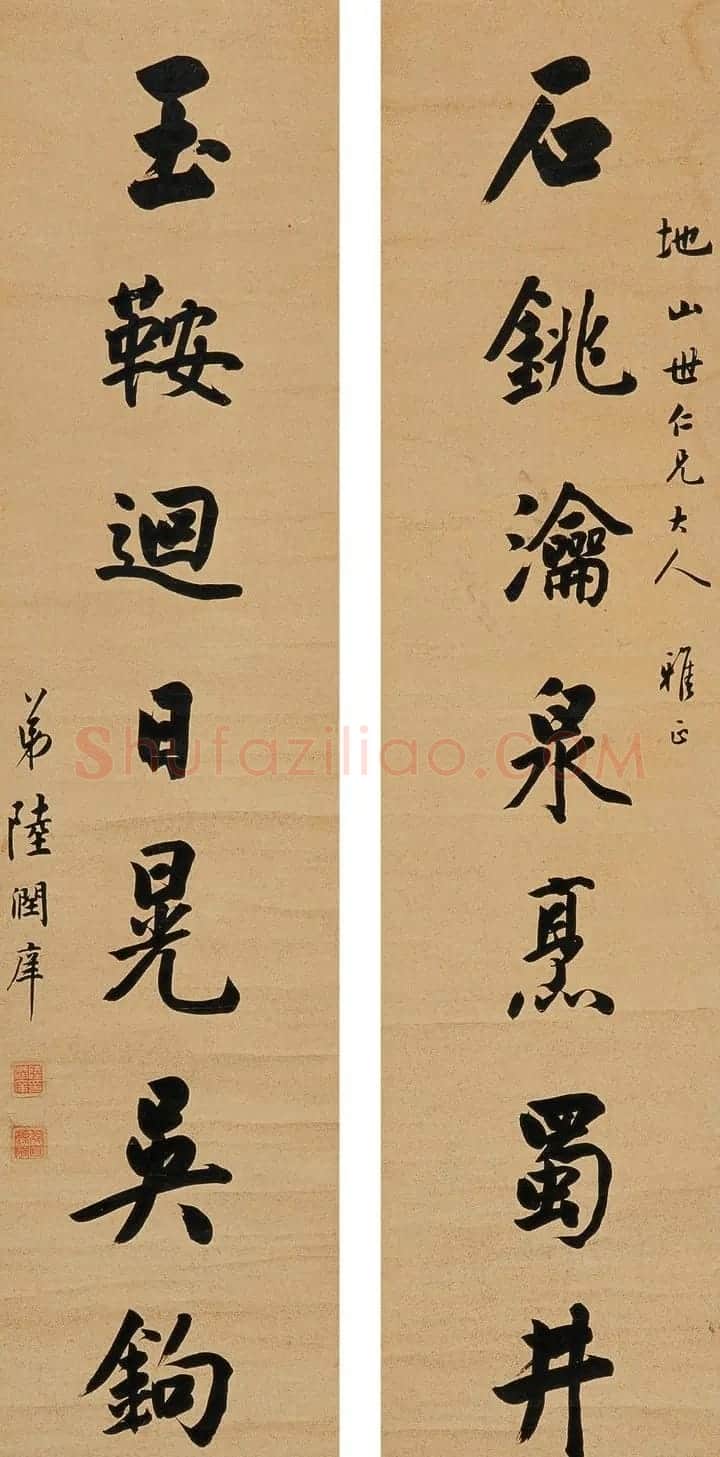 地山世仁兄大人 雅正
石銚瀹泉烹蜀井
玉鞍迴日晃吳鉤
弟陸潤庠
Shufaziliao.COM